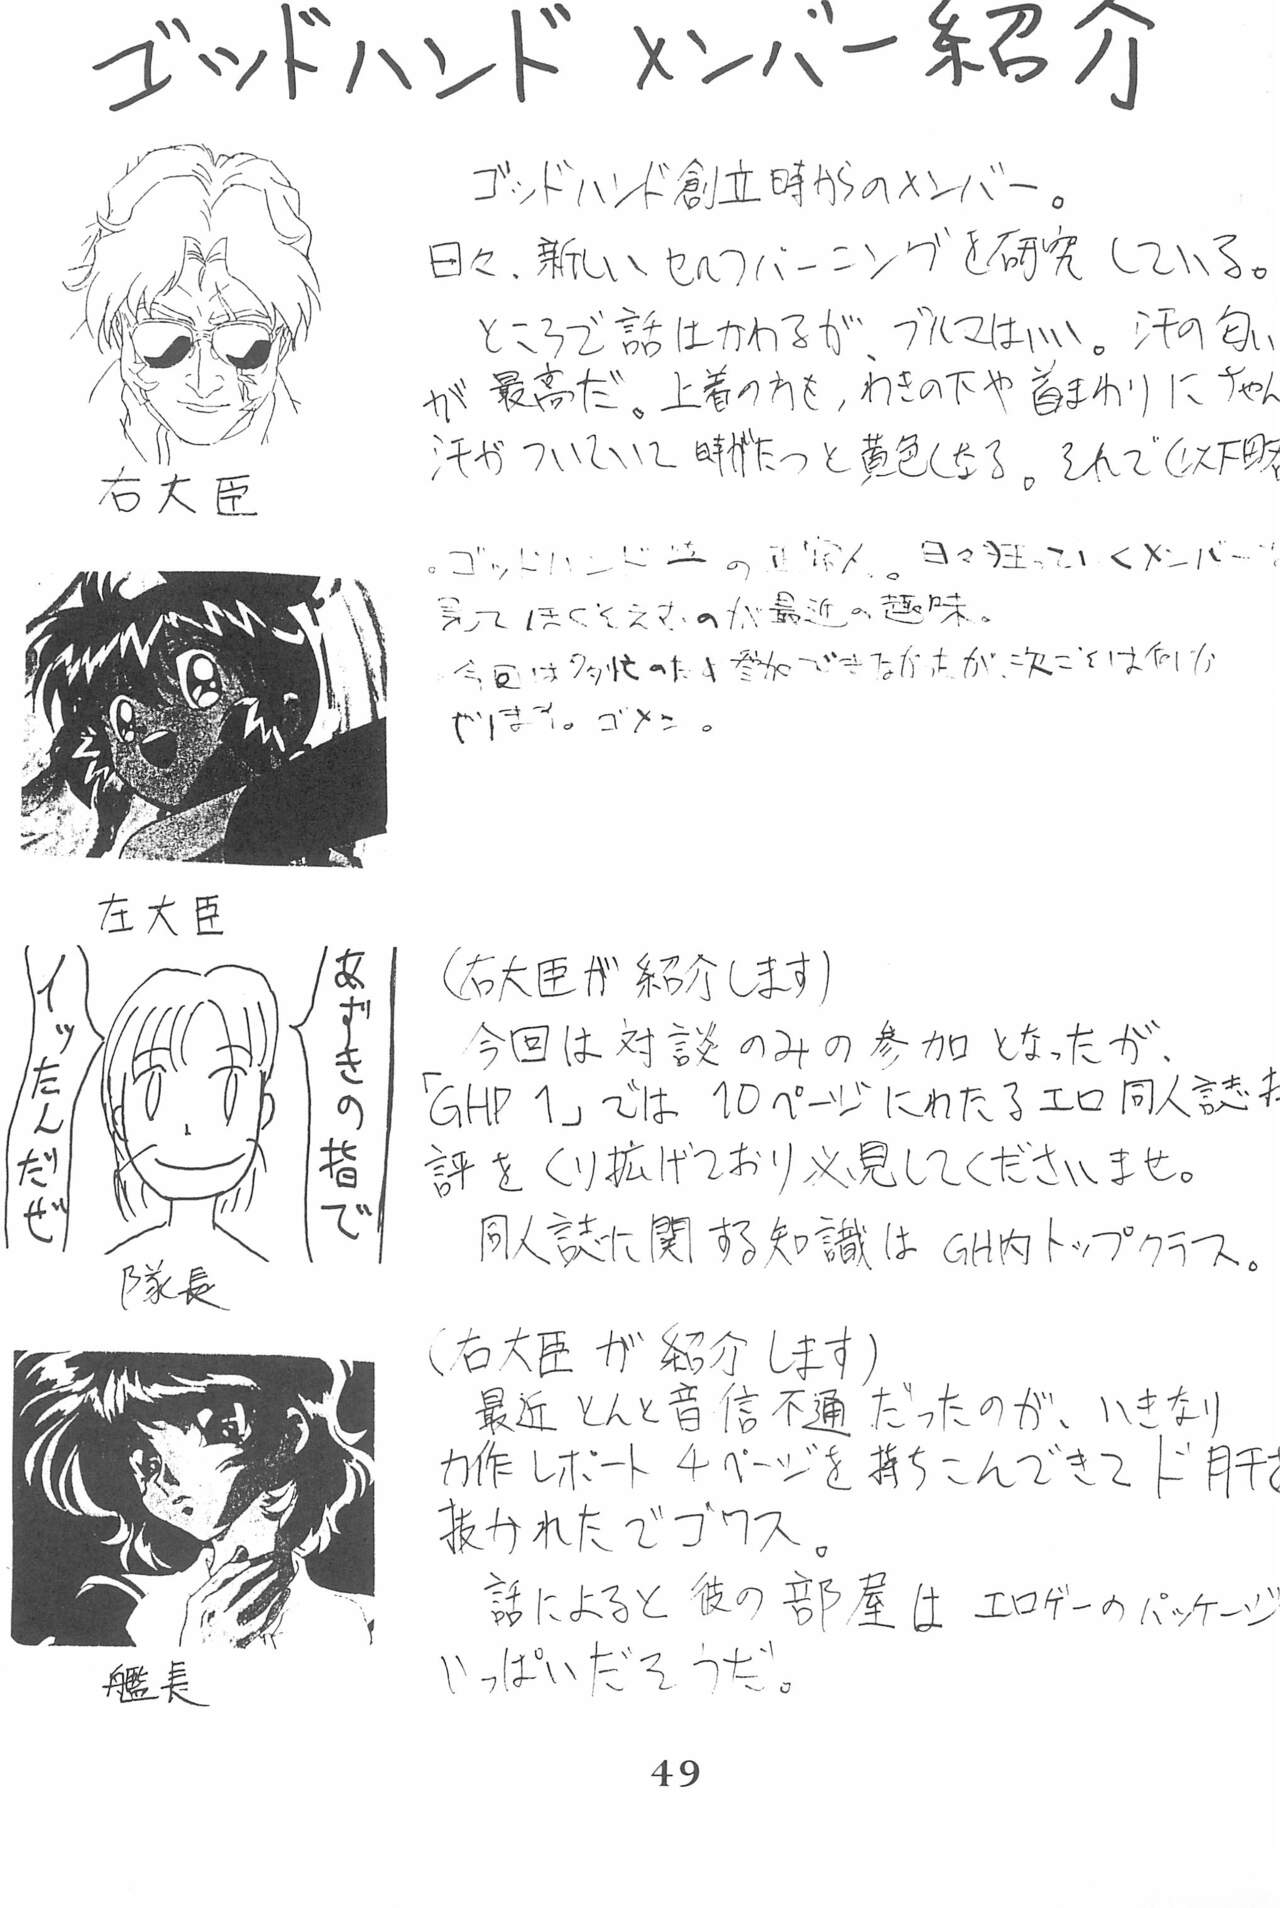 ゴッドハンド メンバー紹介
ゴッドハンド創立時からのメンバー。
日々、新しいセルフバーニングを研究している。
ところで話はかわるが、ブルマはいい。汗の匂い
が最高だ。上着の方も、わきの下や首まわりにちゃん
汗がついていて時がたつと黄色くなる。それで(以下略
右大臣
ゴッドハンド の 。日々狂っていくメンバー
見てほくそえむのが最近の趣味。
今回は多忙のため参加できなかったが、次こそは何か
やります。ゴメン。
でへへ
左大臣
(右大臣が紹介します)
今回は対談のみの参加となったが、
「GHP1」では10ページにわたるエロ同人誌
評をくり拡げており必見してくださいませ。
同人誌に関する知識はGH内トップクラス。
あずきの指で
イッたんだぜ
隊長
(右大臣が紹介します)
最近とんと音信不通だったのが、いきなり
力作レポート4ページを持ちこんできてド肝を
抜かれたでゴワス。
話によると彼の部屋はエロゲーのパッケージ
いっぱいだそうだ。
艦長
49